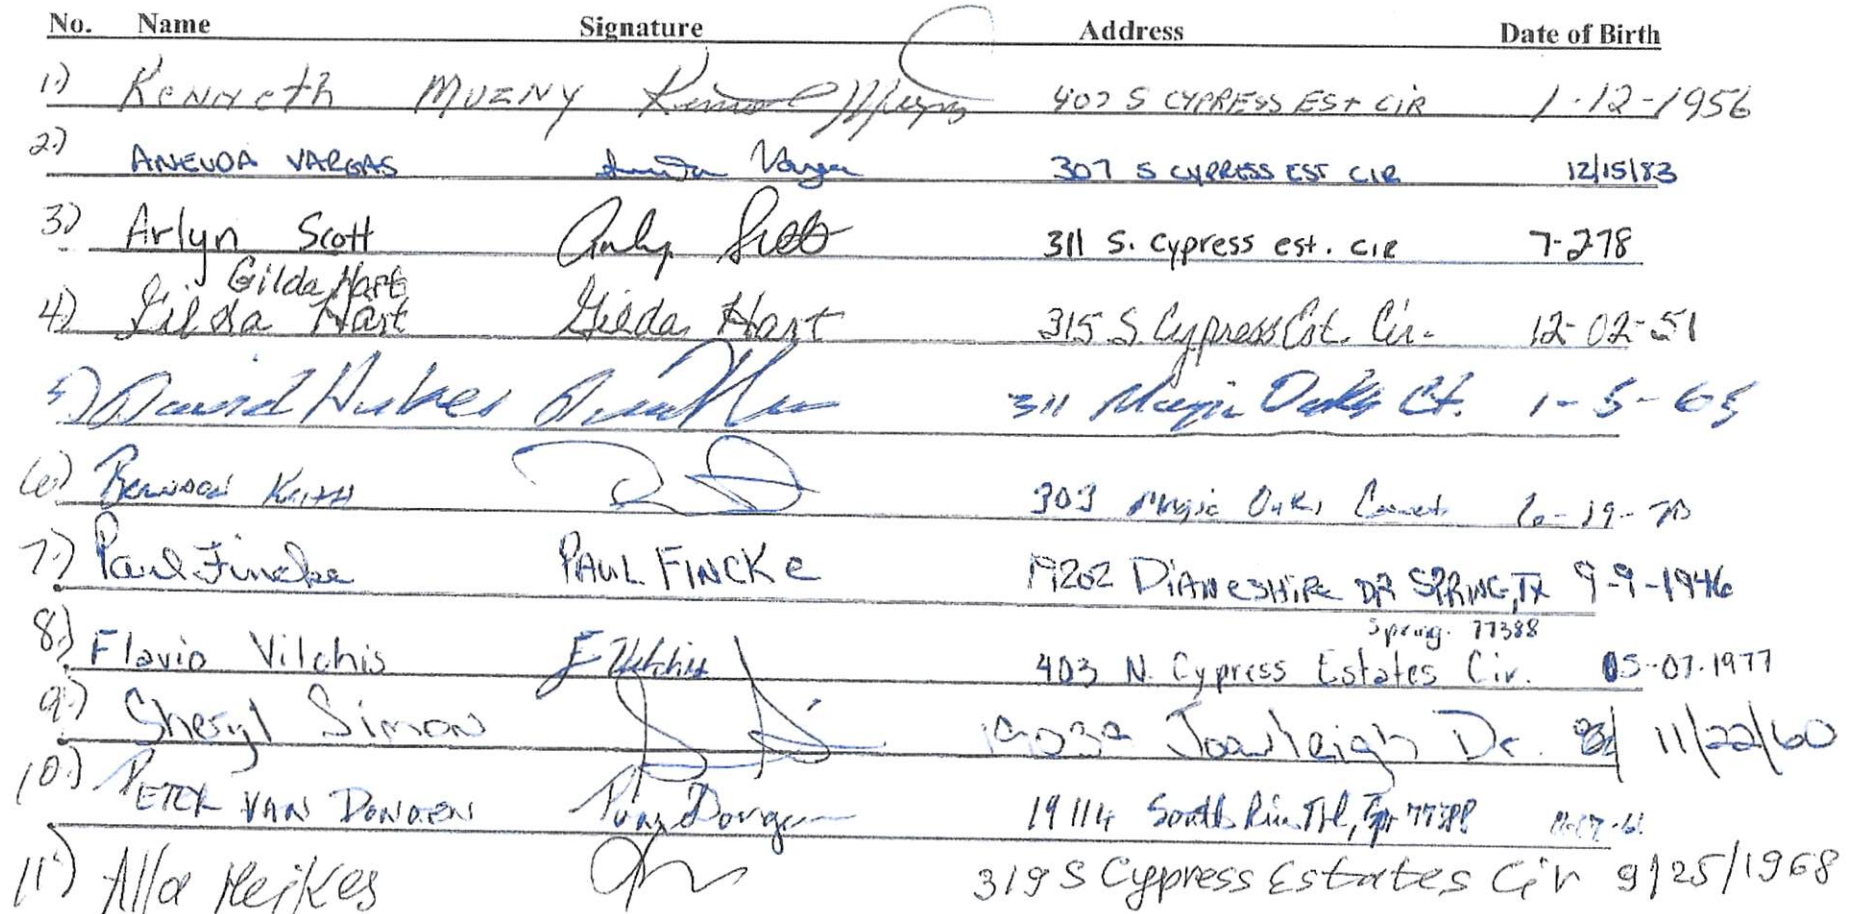 No. Name Signature Address Date of Birth
1.) Kenneth MUZNY 407 S CYPRESS EST CIR 1-12-1956
2.) ANEUDA VARGAS Vargas 307 S CYPRESS EST CIR 12/15/83
3.) Arlyn Scott Arlyn Scott 311 S. Cypress est. CIR 7-278
Gilda Hart
4.) Gilda Hart Gilda Hart 315 S. Cypress Est. Cir. 12-02-51
5.) David Hukes 311 Magic Oaks Ct. 1-5-65
6.) KEITH 303 Magic Oaks Court 6-19-70
7.) Paul Fincke PAUL FINCKe 19202 DiANeSHiRe DR SPRING, TX 9-9-1946
Spring. 77388
8.) Flavio Vilchis F Vilchis 403 N. Cypress Estates Cir. 05-07-1977
9.) Sheryl Simon Joanleigh Dr. 11/22/60
10.) PETER VAN DONGEN 19114 South Rim Trl, 77388
11.) Alla Heikes 319 S Cypress Estates Cir 9/25/1968